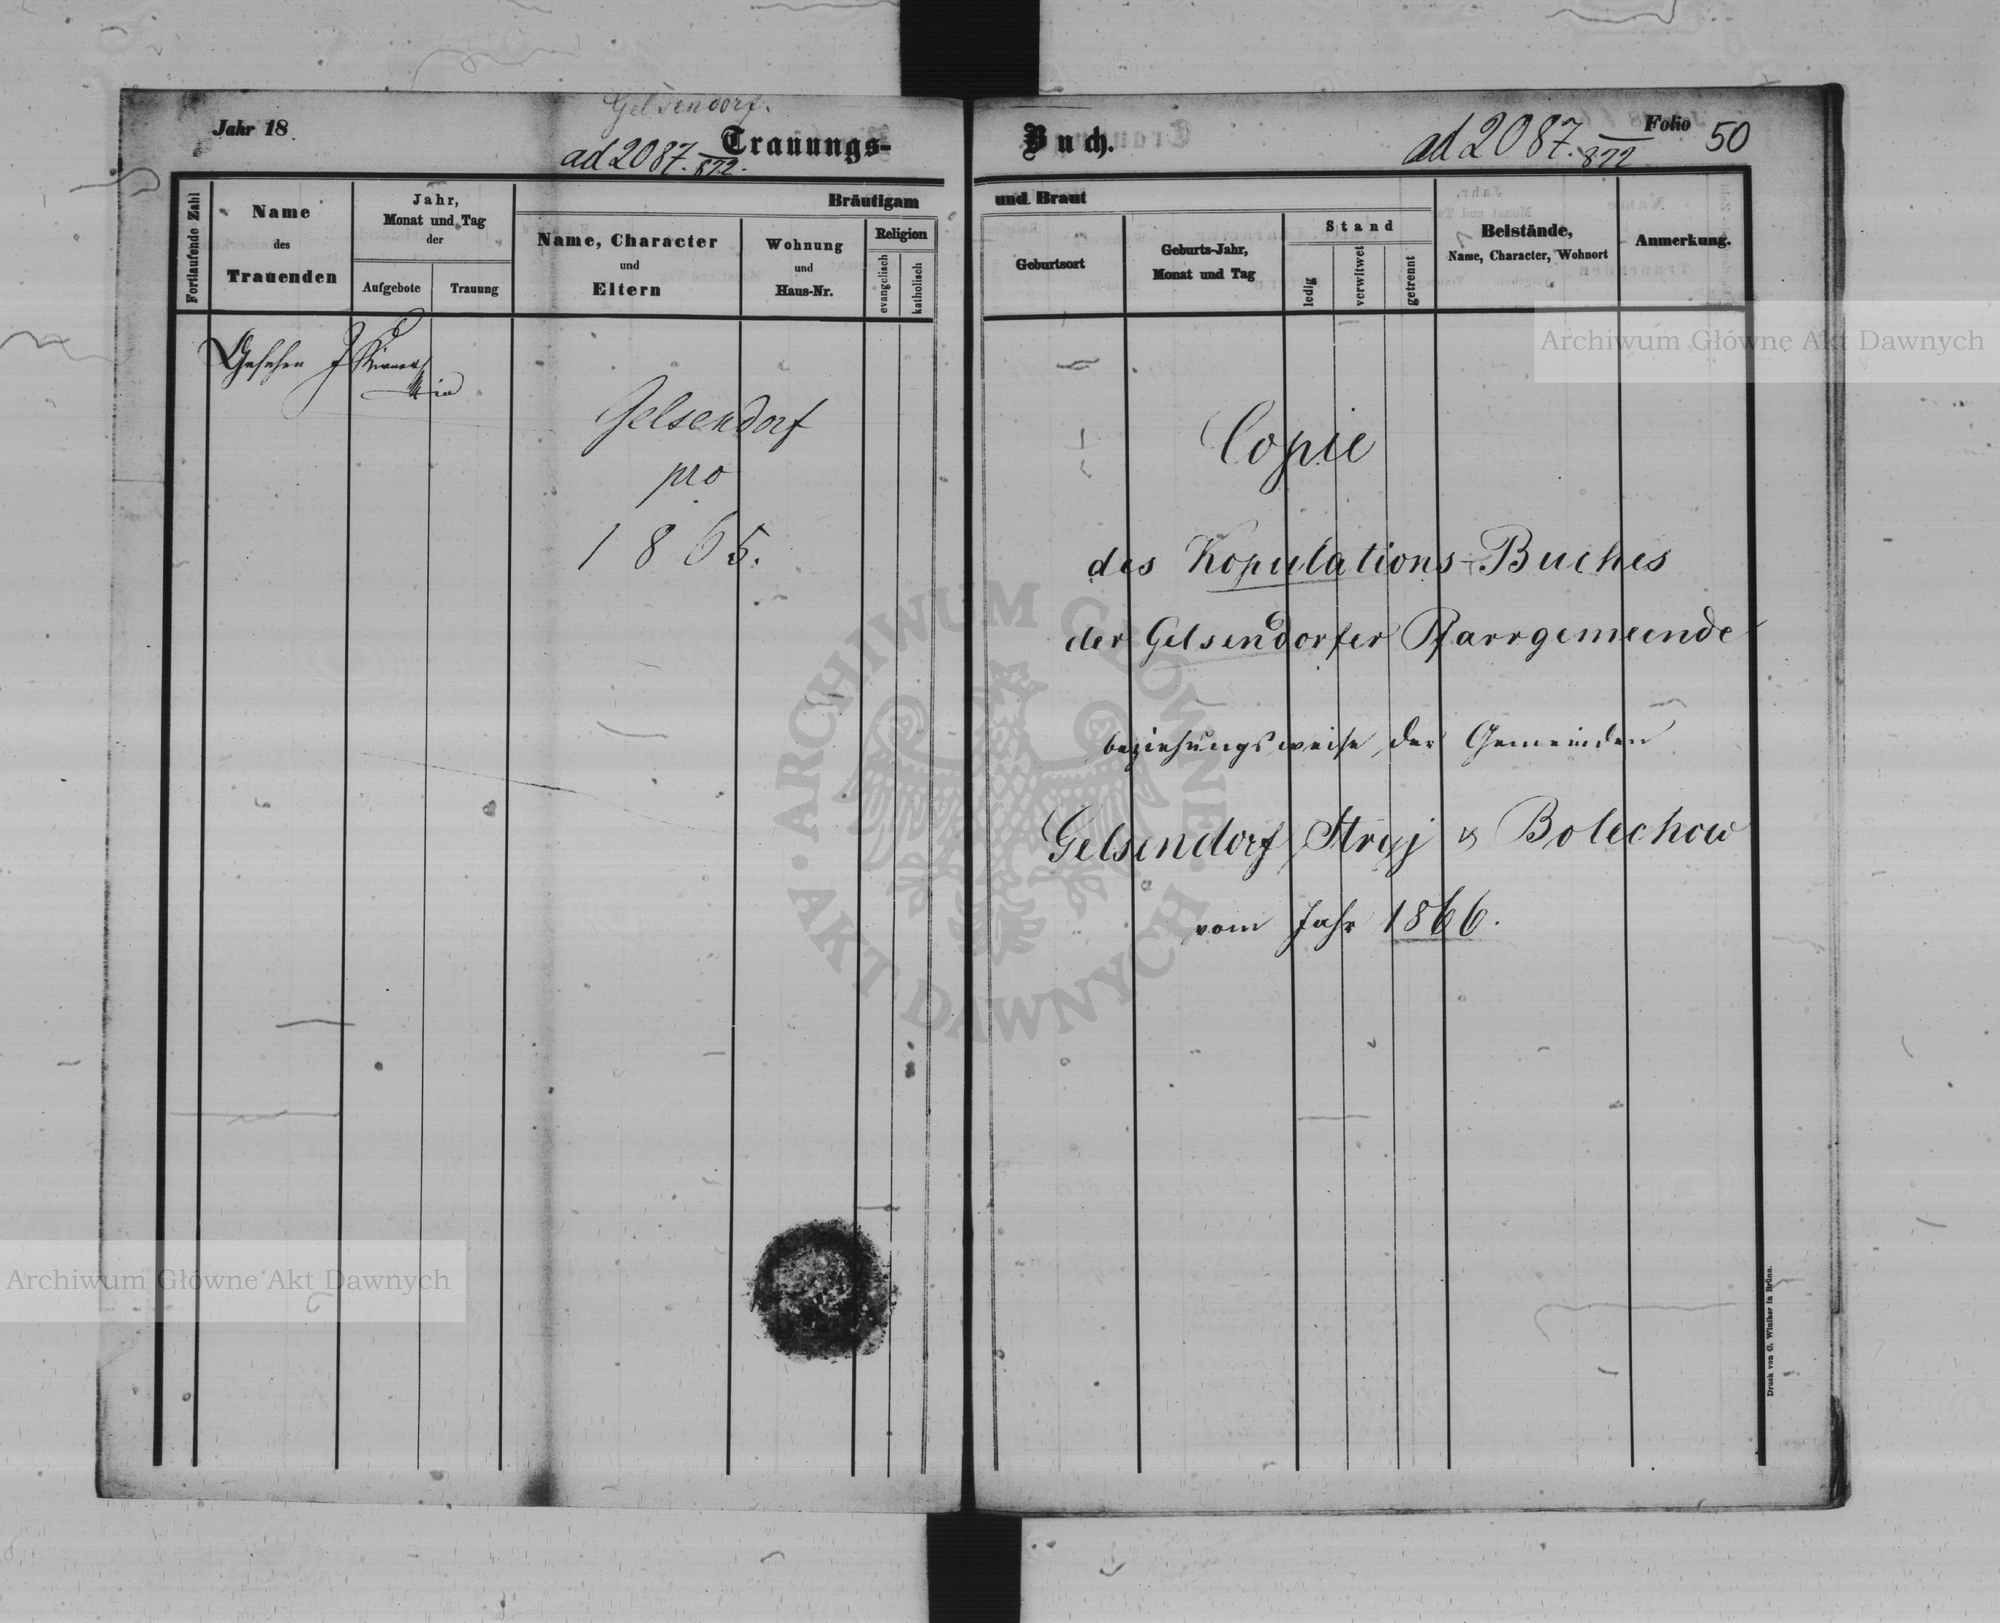 Gelsendorf.
Jahr 18
Trauungs-
ad 2087. 872.
Fortlaufende Zahl
Name
des
Trauenden
Jahr,
Monat und Tag
der
Aufgebote
Trauung
Bräutigam
Name, Character
und
Eltern
Wohnung
und
Haus-Nr.
Religion
evangelisch
katholisch
Gesehen
Gelsendorf
pro
1865.
Buch.
ad 2087. 872
Folio 50
und Braut
Geburtsort
Geburts-Jahr,
Monat und Tag
Stand
ledig
verwitwet
getrennt
Beistände,
Name, Character, Wohnort
Anmerkung.
Copie
des Kopulations-Buches
der Gelsendorfer Pfarrgemeinde
beziehungsweise der Gemeinden
Gelsendorf, Stryj & Bolechow
vom Jahr 1866.
Druck von G. Winiker in Brünn.
Archiwum Główne Akt Dawnych
Archiwum Główne Akt Dawnych
ARCHIWUM GŁÓWNE · AKT DAWNYCH ·